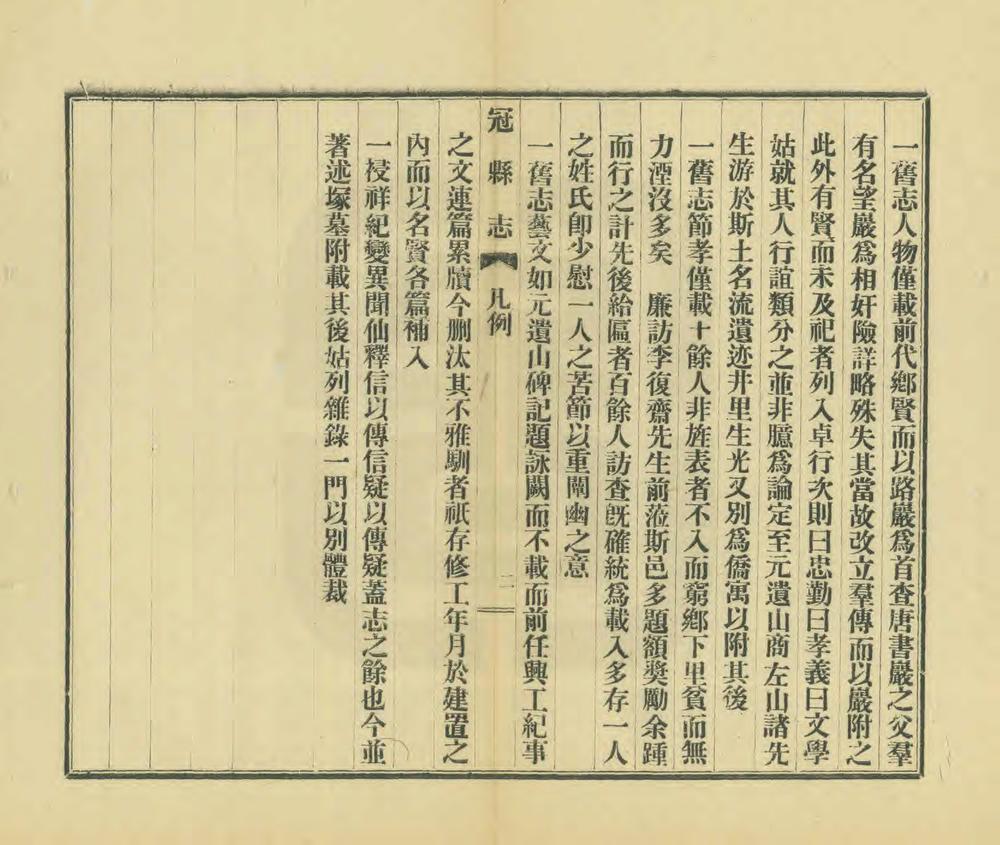 一舊志人物僅載前代鄉賢而以路巖爲首查唐書巖之父羣
有名望巖爲相奸險詳略殊失其當故改立羣傳而以巖附之
此外有賢而未及祀者列入卓行次則曰忠勤曰孝義曰文學
姑就其人行誼類分之並非臆爲論定至元遺山商左山諸先
生游於斯土名流遺迹井里生光又別爲僑寓以附其後
一舊志節孝僅載十餘人非旌表者不入而窮鄉下里貧而無
力湮沒多矣　廉訪李復齋先生前蒞斯邑多題額奬勵余踵
而行之計先後給匾者百餘人訪查旣確統爲載入多存一人
之姓氏卽少慰一人之苦節以重闡幽之意
一舊志藝文如元遺山碑記題詠闕而不載而前任興工紀事
冠縣志　凡例　二
之文連篇累牘今删汰其不雅馴者祇存修工年月於建置之
內而以名賢各篇補入
一祲祥紀變異聞仙釋信以傳信疑以傳疑蓋志之餘也今並
著述塚墓附載其後姑列雜錄一門以別體裁